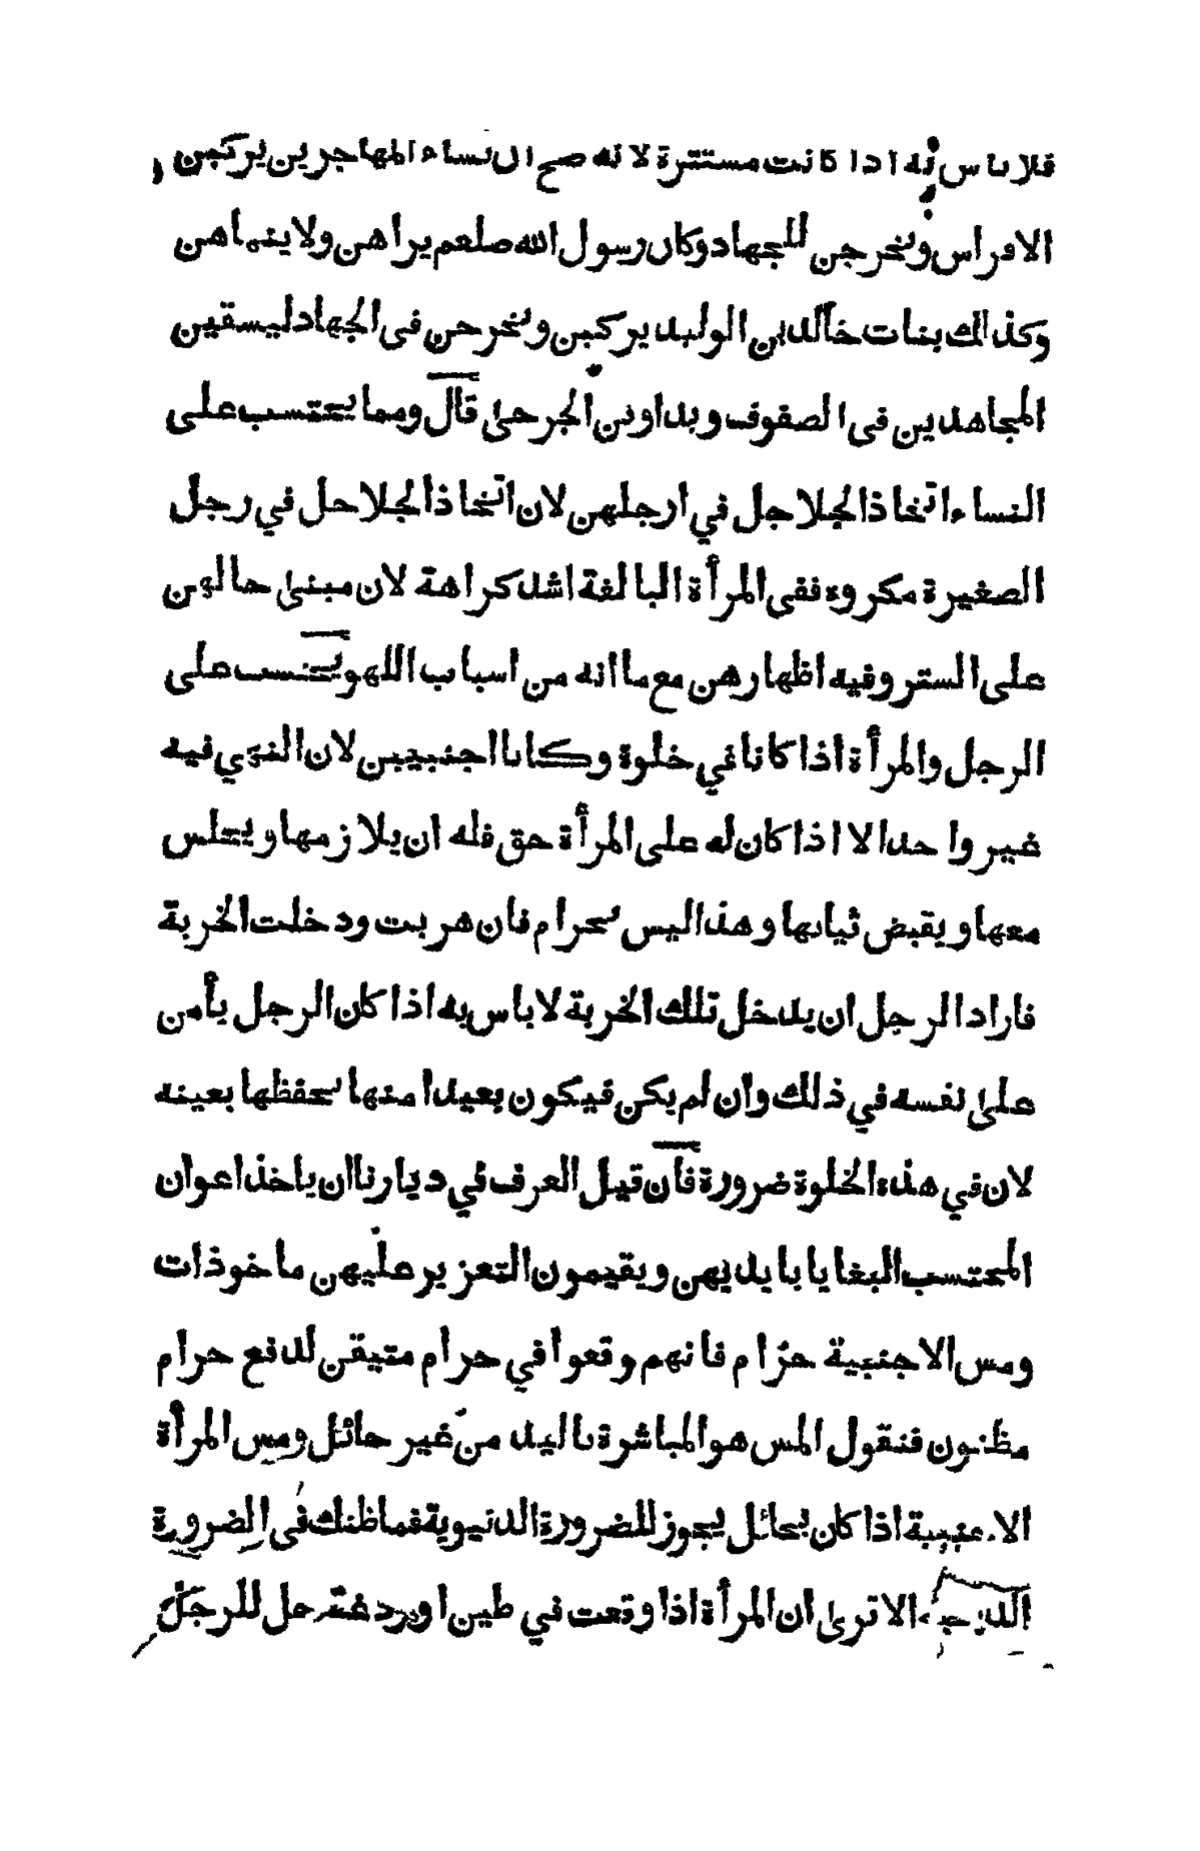 فلا باس به اذا كانت مستترة لانه صح ان نساء المهاجرين يركبن
الافراس ويخرجن للجهاد وكان رسول الله صلعم يراهن ولا ينهاهن
وكذالك بنات خالد بن الوليد يركبن ويخرجن فى الجهاد ليسقين
المجاهدين فى الصفوف ويداوين الجرحى قال ومما يحتسب على
النساء اتخاذ الجلاجل في ارجلهن لان اتخاذ الجلاجل في رجل
الصغيرة مكروه ففى المرأة البالغة اشد كراهة لان مبنى حالهن
على الستر وفيه اظهارهن مع ما انه من اسباب اللهو يحتسب على
الرجل والمرأة اذا كانا في خلوة وكانا اجنبيين لان النهي فيه
غير واحد الا اذا كان له على المرأة حق فله ان يلازمها ويجلس
معها ويقبض ثيابها وهذا ليس بحرام فان هربت ودخلت الخربة
فاراد الرجل ان يدخل تلك الخربة لا باس به اذا كان الرجل يأمن
على نفسه في ذلك وان لم يكن فيكون بعيدا منها يحفظها بعينه
لان في هذه الخلوة ضرورة فان قيل العرف في ديارنا ان ياخذ اعوان
المحتسب البغايا بايديهن ويقيمون التعزير عليهن ماخوذات
ومس الاجنبية حرام فانهم وقعوا في حرام متيقن لدفع حرام
مظنون فنقول المس هو المباشرة باليد من غير حائل ومس المرأة
الاجنبية اذا كان بحائل يجوز للضرورة الدنيوية فما ظنك فى الضرورة
الا ترى ان المرأة اذا وقعت في طين او ردغة حل للرجل